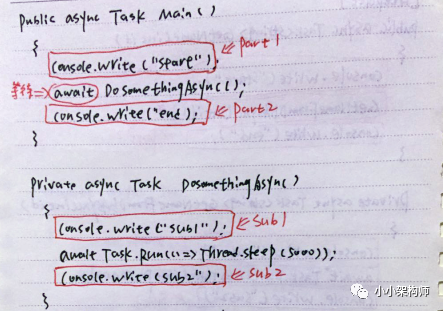 public async Task Main()
{
Console.Write("start");
part1
等待=> await DosomethingAsync();
Console.Write("end);
part2
}
Private async Task DosomethingAsync()
{
Console.Write("sub1");
sub1
await Task.Run(()=>Thread.sleep(5000));
Console.Write(sub2");
sub2
}
小小架构师